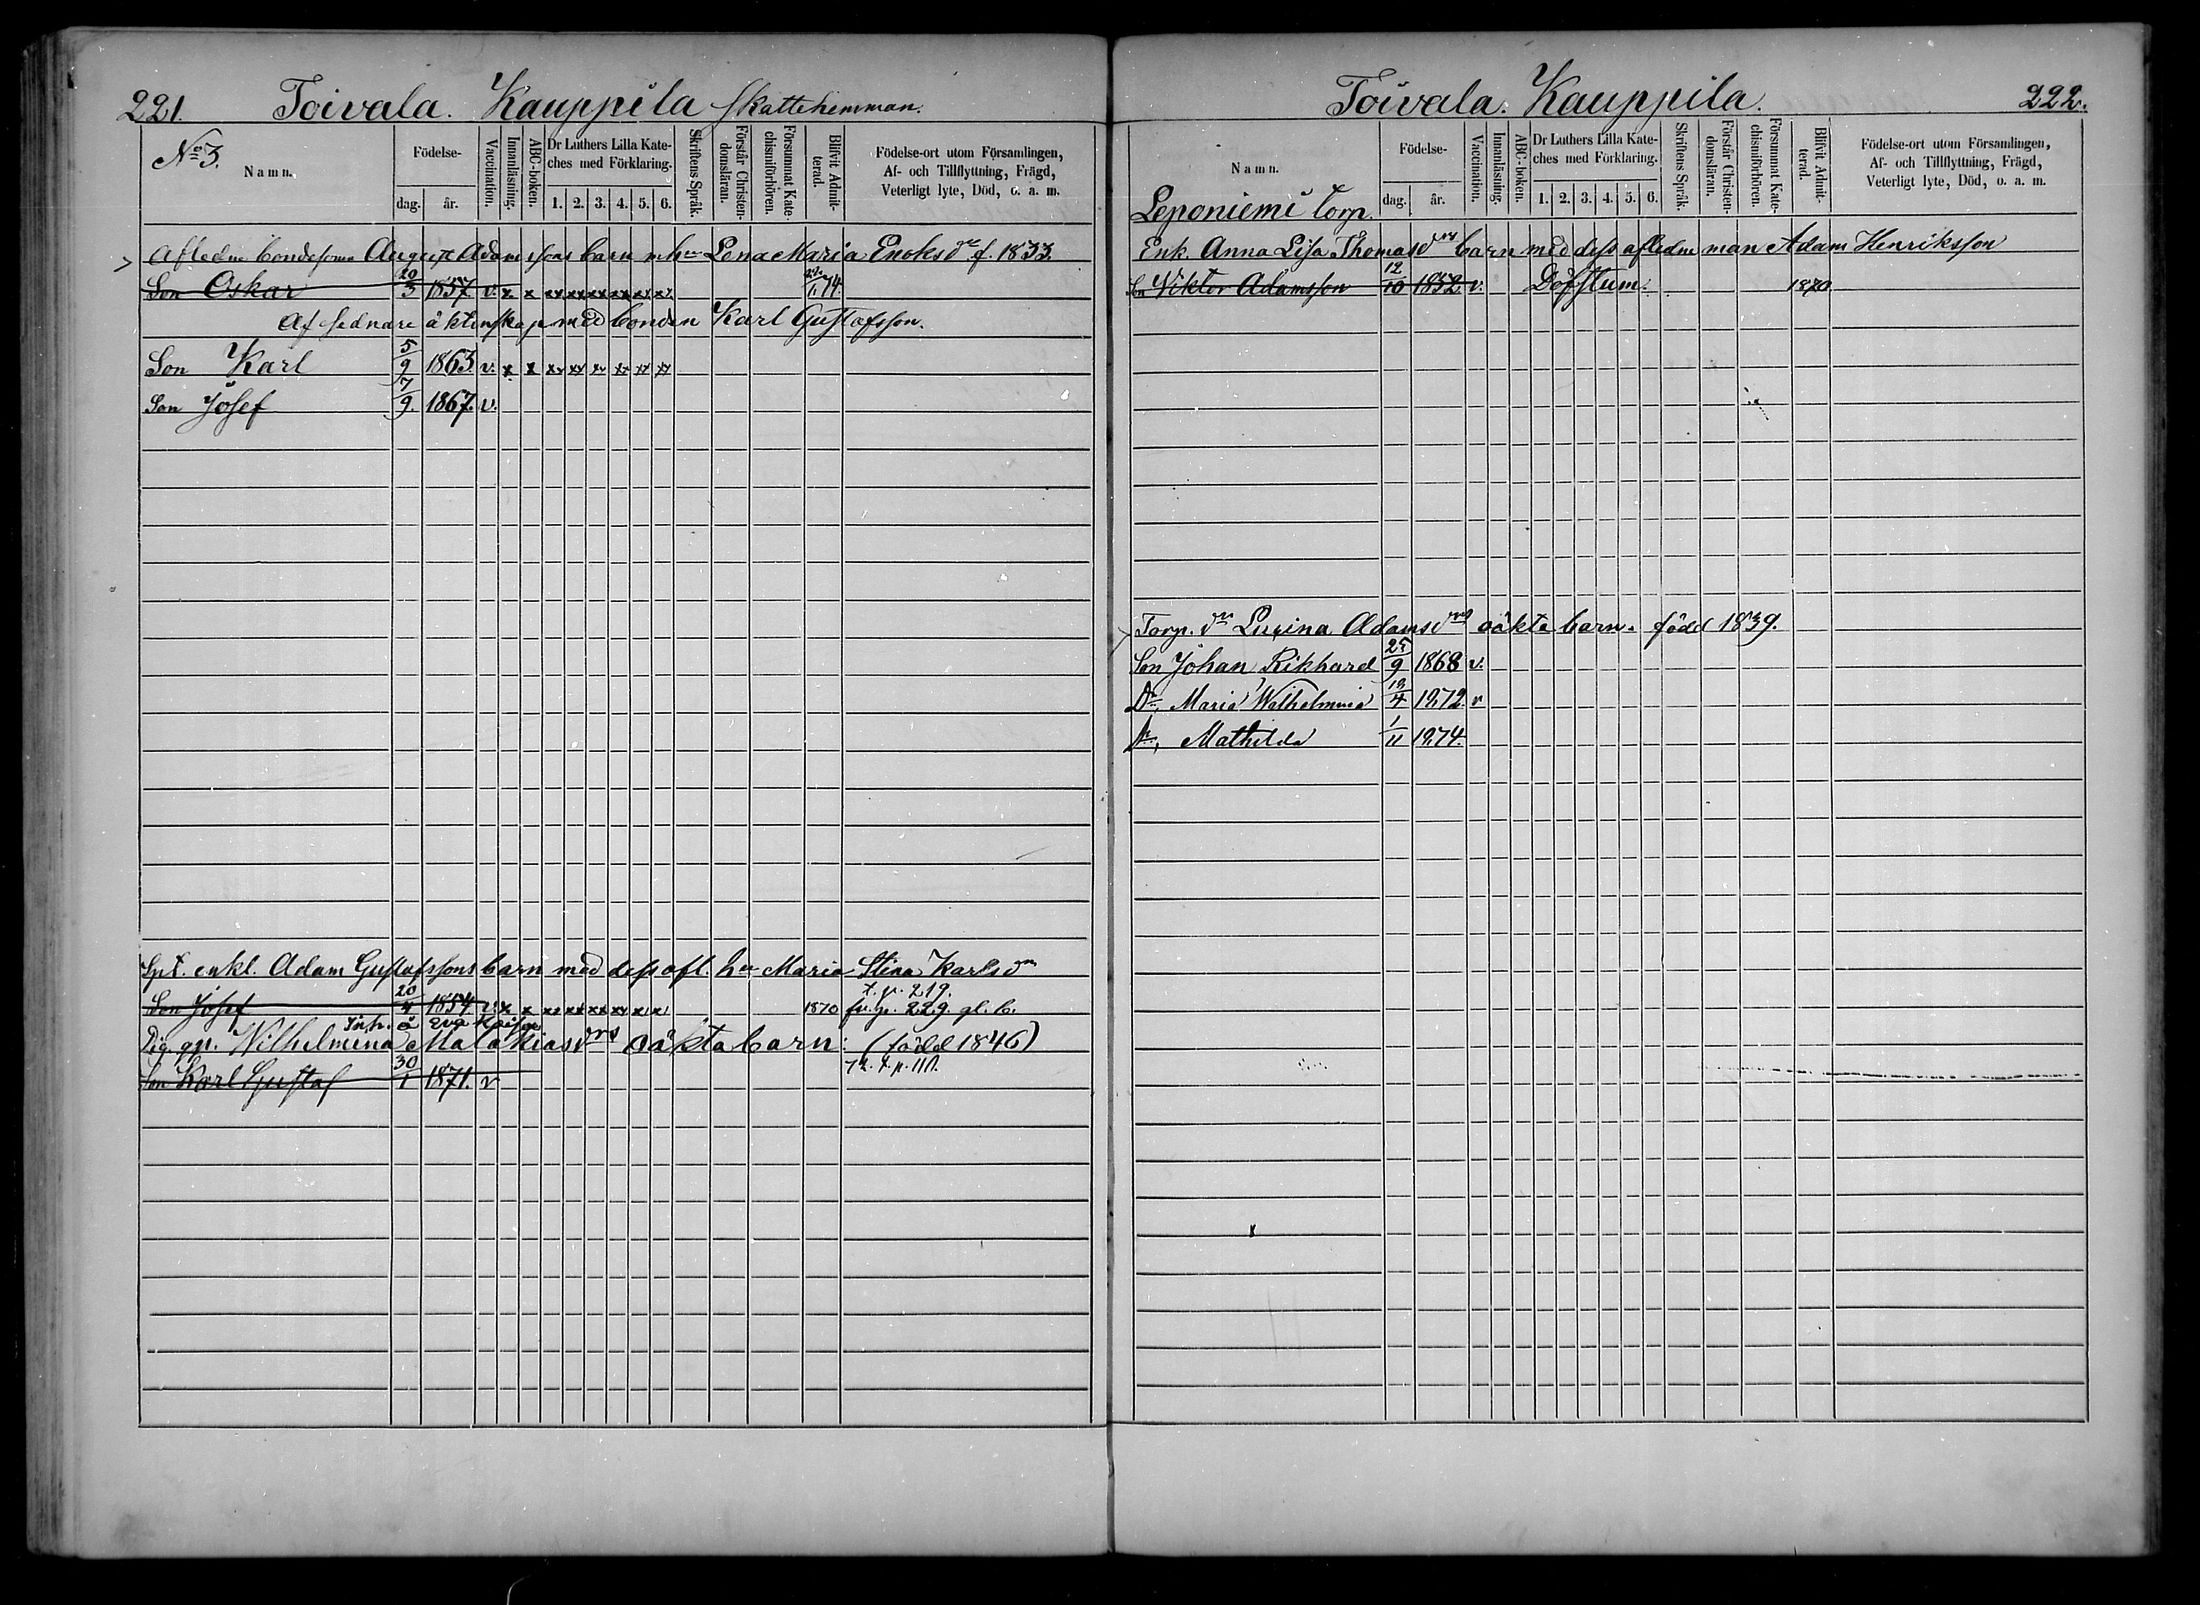 221. Toivala. Kauppila Skattehemman.
No 3.
Namn.
Födelse-
dag. år.
Vaccination.
Innanläsning.
ABC-boken.
Dr Luthers Lilla Kateches med Förklaring.
1. 2. 3. 4. 5. 6.
Skriftens Språk.
Förstår Christendomsläran.
Försummat Katechismiförhören.
Blifvit Admitterad.
Födelse-ort utom Församlingen,
Af- och Tillflyttning, Frägd,
Veterligt lyte, Död, o. a. m.
Afledne bondesonen August Adamssons barn m. hu Lena Maria Enoksdr f. 1833.
Son Oskar 20/3 1857. v. x x xx xx xx xx xx xx 74.
Af sednare äktenskap med bonden Karl Gustafsson.
Son Karl 5/9 1863 v. x x xx xx xx xx xx xx
Son Josef 7/9. 1867. v.
enkl. Adam Gustafssons barn med dess afl. hu Maria Stina Karlsdr
t. p. 219.
Son Josef 20/4 1854 v. x x xx xx xx xx x x 1870 fr. p. 229. gl. b.
Inh. å
Pig. Wilhelmina Malakiasdrs oäkta barn: (född 1846)
72. t. p. 110.
Son Karl Gustaf 30/1 1871. v
Toivala. Kauppila. 222.
Namn.
Födelse-
dag. år.
Vaccination.
Innanläsning.
ABC-boken.
Dr Luthers Lilla Kateches med Förklaring.
1. 2. 3. 4. 5. 6.
Skriftens Språk.
Förstår Christendomsläran.
Försummat Katechismiförhören.
Blifvit Admitterad.
Födelse-ort utom Församlingen,
Af- och Tillflyttning, Frägd,
Veterligt lyte, Död, o. a. m.
Leponiemi torp.
Enk. Anna Lisa Thomasdrs barn med dess afledne man Adam Henriksson
Son Viktor Adamsson 12/10 1852. v. Döfstum. 1870
Torp. dr Lusina Adamsdrs oäkta barn. född 1839.
Son Johan Rikhard 25/9 1868 v.
Dr, Maria Wilhelmina 13/4 1872. v
Dr, Mathilda 1/11 1874.